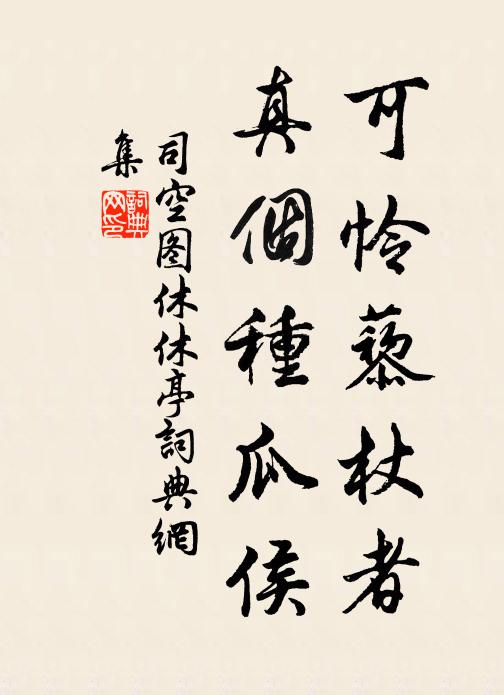 可怜藜杖者
真個種瓜侯
司空图休休亭詞典網
集
詞典网印